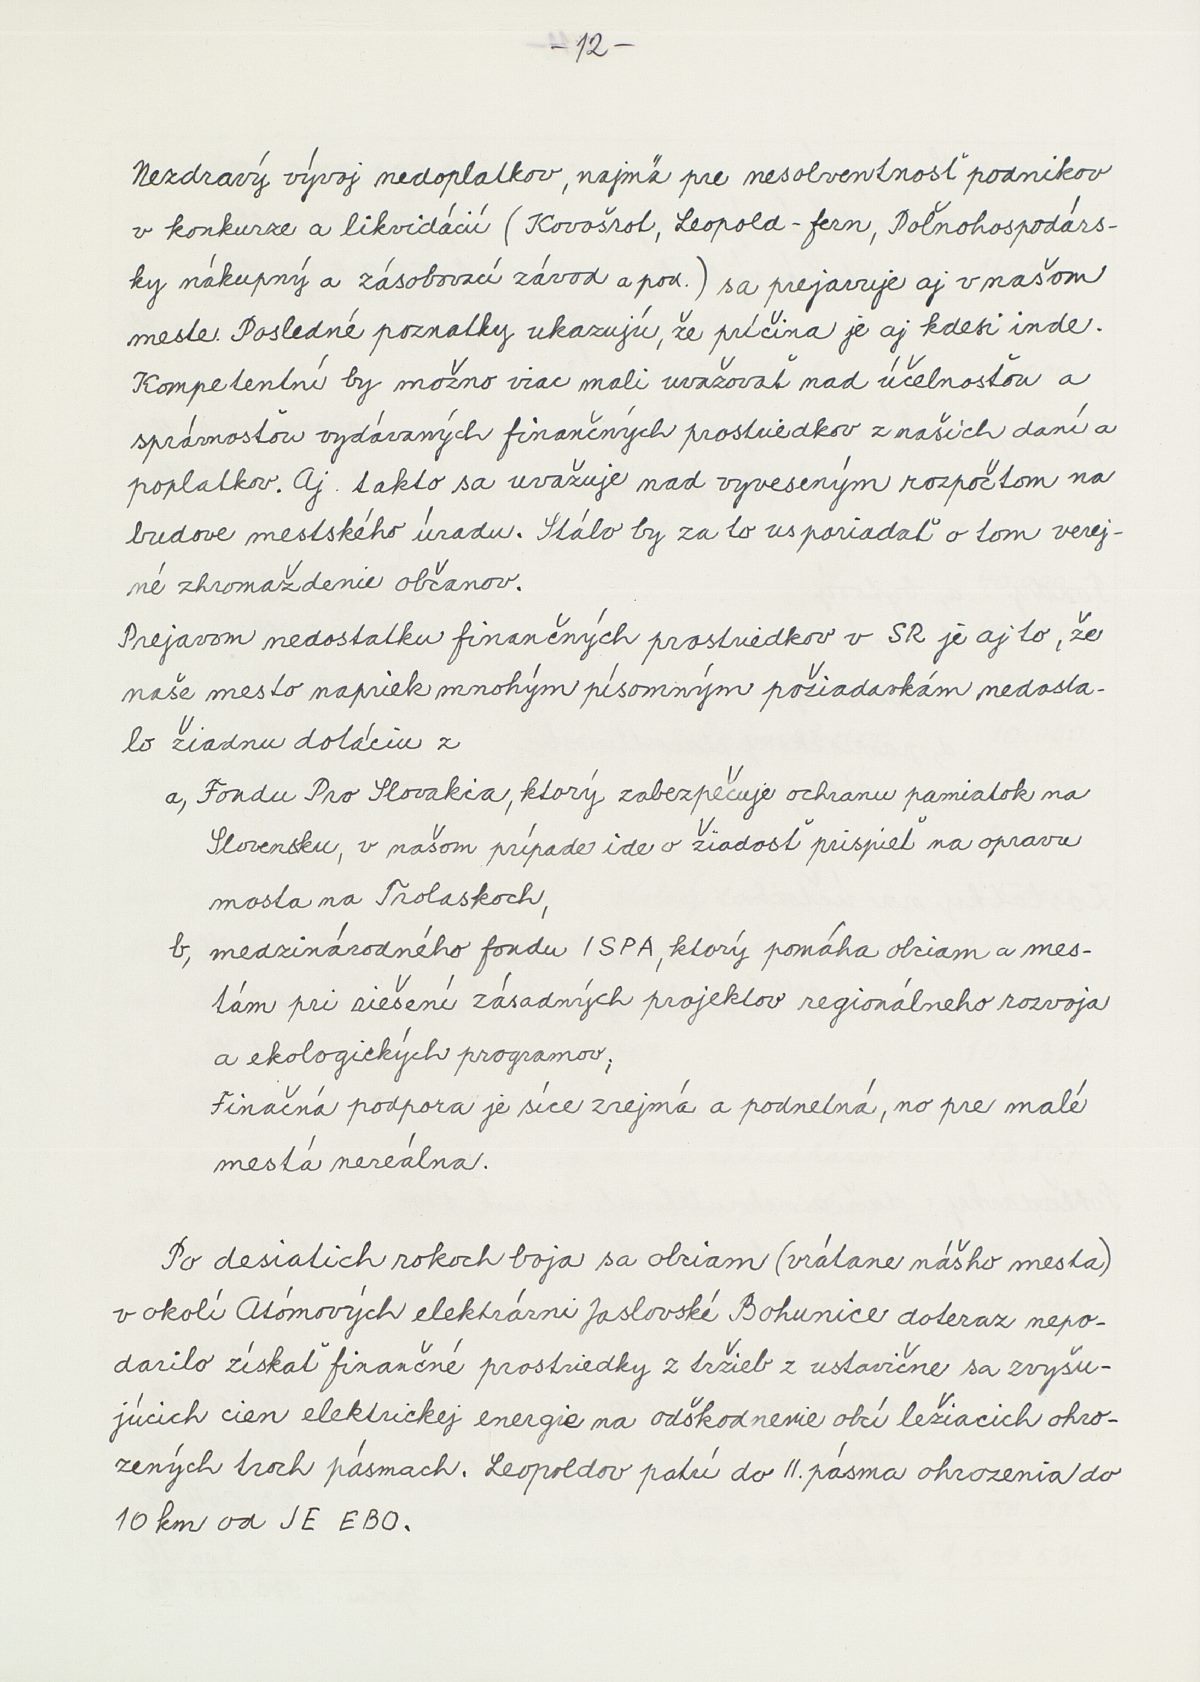 - 12 -
Nezdravý vývoj nedoplatkov, najmä pre nesolventnosť podnikov
v konkurze a likvidácií (Kovošrot, Leopold-fern, Poľnohospodárs-
ky nákupný a zásobovací závod a pod.) sa prejavuje aj v našom
meste. Posledné poznatky ukazujú, že príčina je aj kdesi inde.
Kompetentní by možno viac mali uvažovať nad účelnosťou a
správnosťou vydávaných finančných prostriedkov z našich daní a
poplatkov. Aj takto sa uvažuje nad vyveseným rozpočtom na
budove mestského úradu. Stálo by za to usporiadať o tom verej-
né zhromaždenie občanov.
Prejavom nedostatku finančných prostriedkov v SR je aj to, že
naše mesto napriek mnohým písomným požiadavkám nedosta-
lo žiadnu dotáciu z
a, Fondu Pro Slovakia, ktorý zabezpečuje ochranu pamiatok na
Slovensku, v našom prípade ide o žiadosť prispieť na opravu
mosta na Trolaskoch,
b, medzinárodného fondu ISPA, ktorý pomáha obciam a mes-
tám pri riešení zásadných projektov regionálneho rozvoja
a ekologických programov;
Finačná podpora je síce zrejmá a podnetná, no pre malé
mestá nereálna.
Po desiatich rokoch boja sa obciam (vrátane nášho mesta)
v okolí Atómových elektrárni Jaslovské Bohunice doteraz nepo-
darilo získať finančné prostriedky z tržieb z ustavične sa zvyšu-
júcich cien elektrickej energie na odškodnenie obcí ležiacich ohro-
zených troch pásmach. Leopoldov patrí do II. pásma ohrozenia do
10 km od JE EBO.